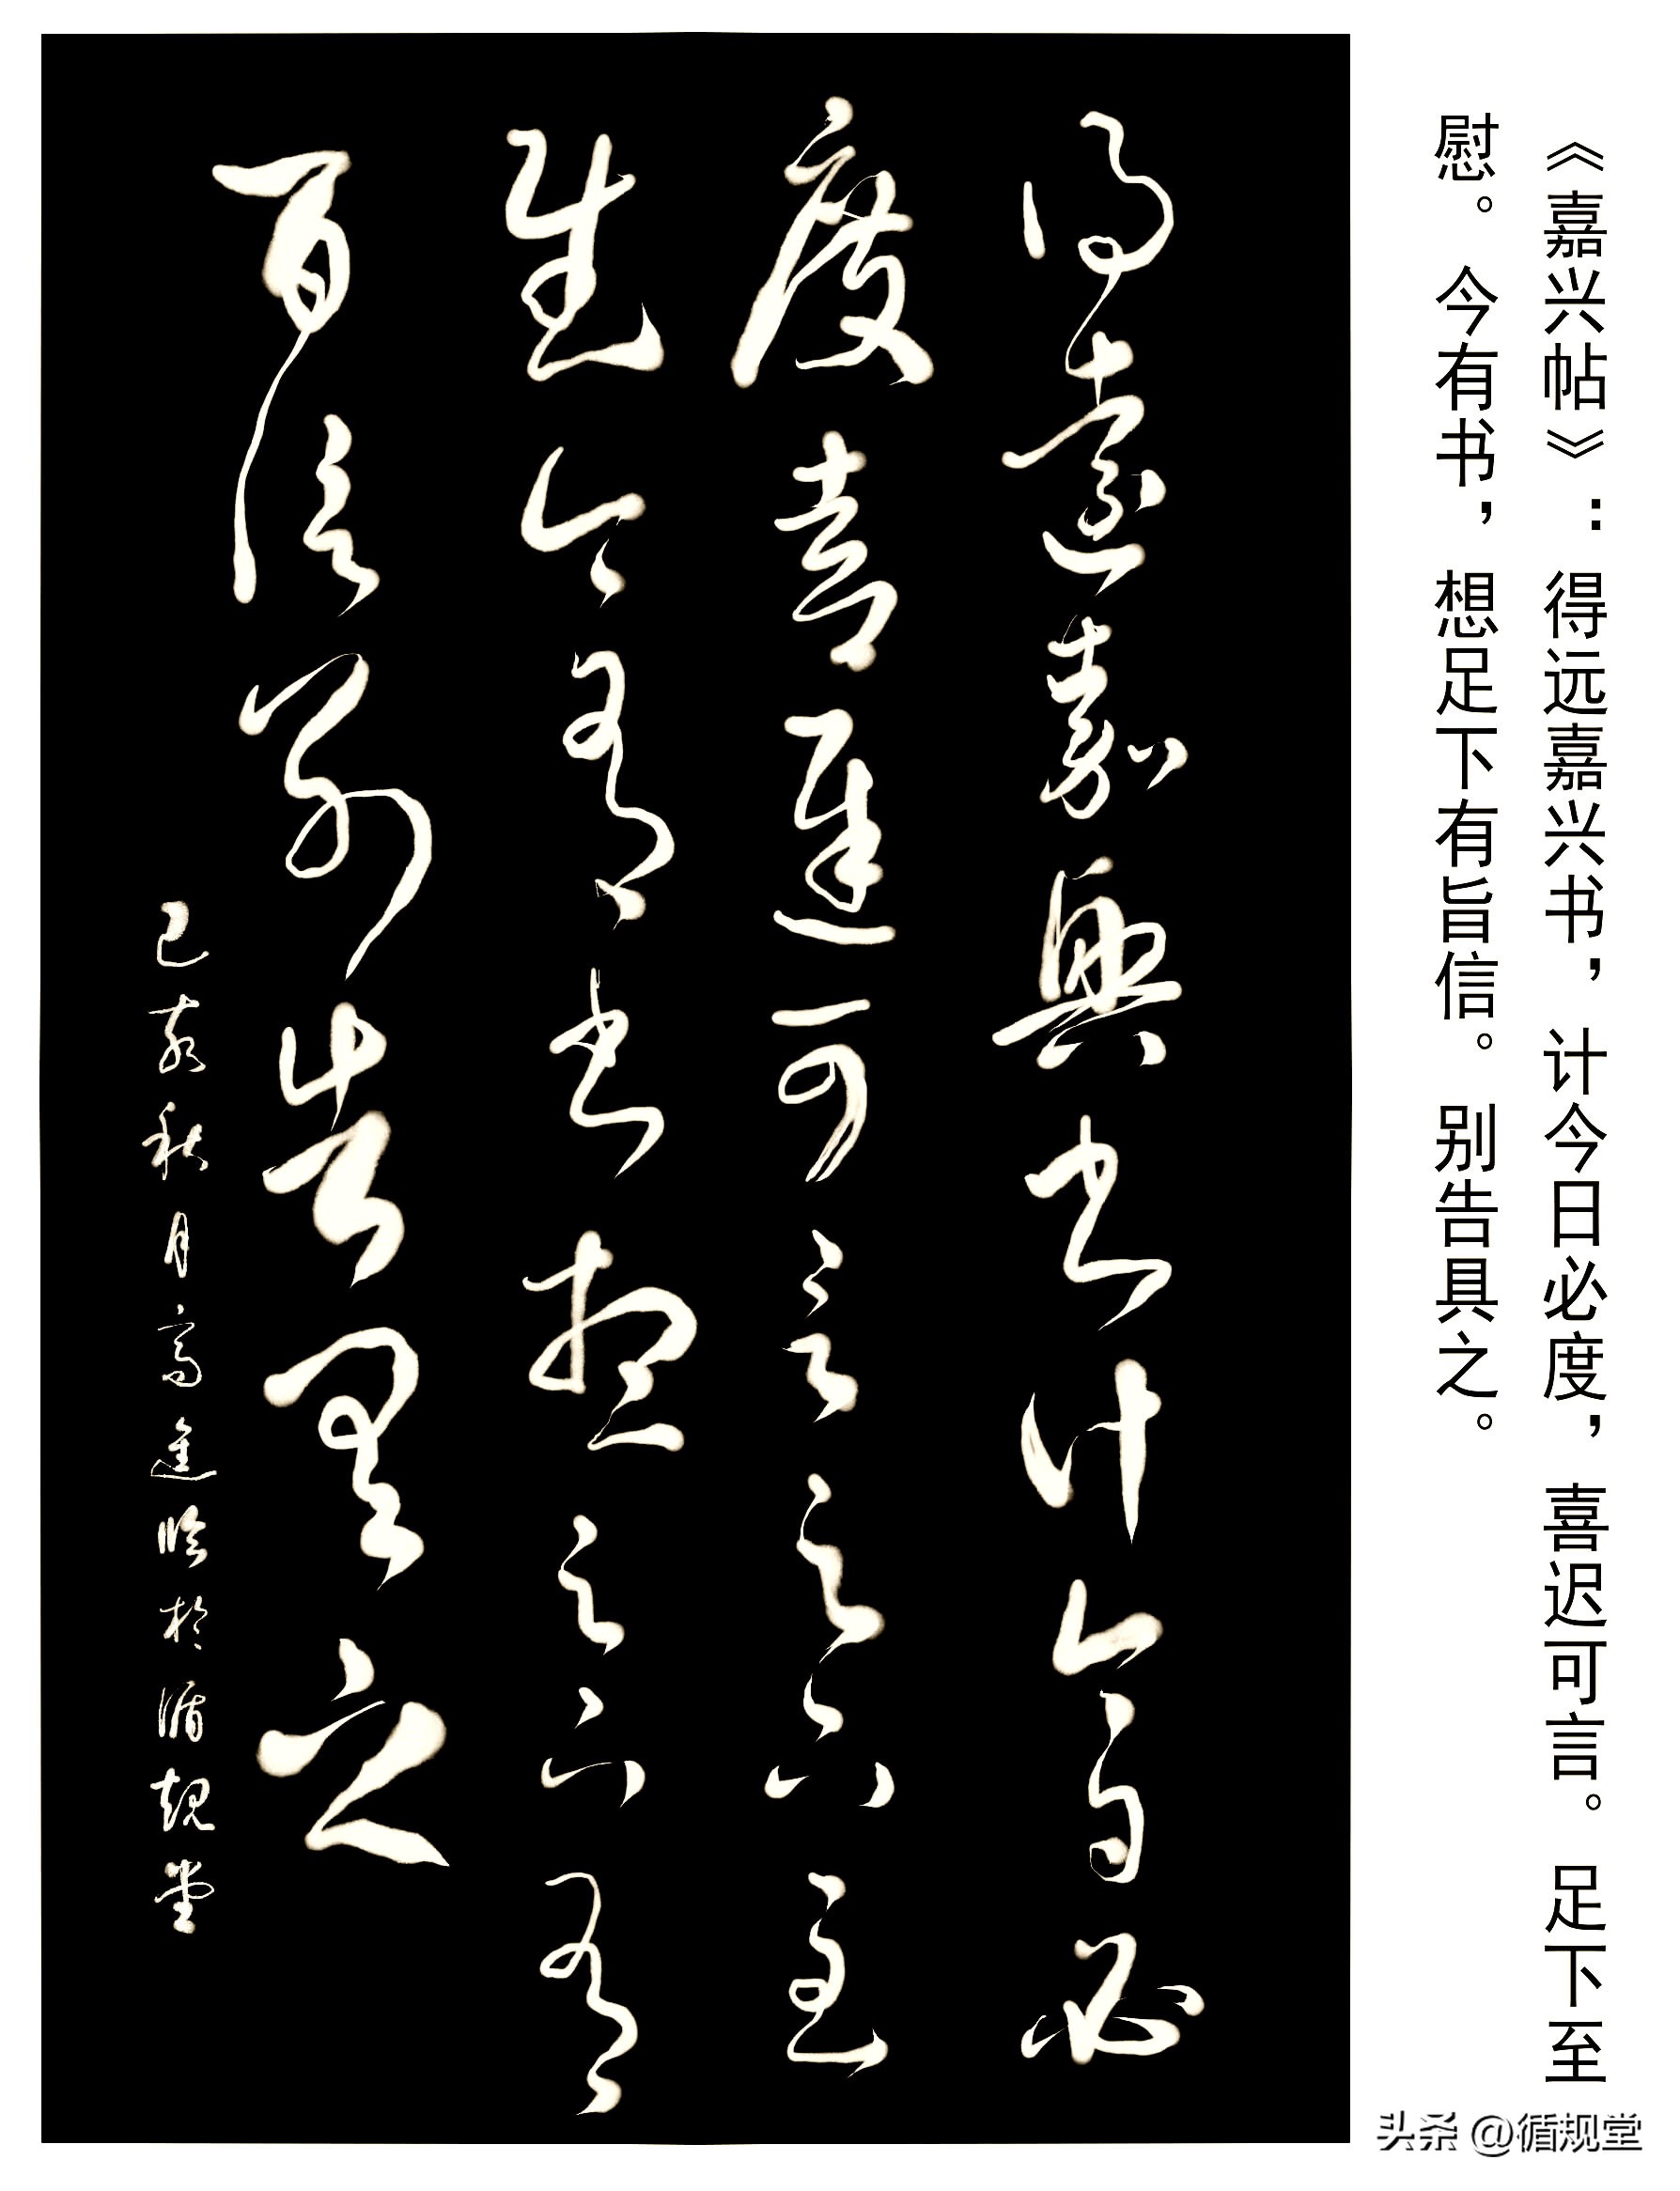 《嘉兴帖》：得远嘉兴书，计今日必度，喜迟可言。足下至
慰。今有书，想足下有旨信。别告具之。
得遠嘉興书计今日必
度喜遲可言足下至
慰今有书想足下有
旨信别告具之
己亥秋月高進临於循規堂
头条@循规堂